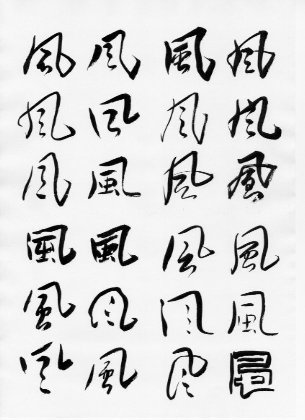 風風風風
風風風風
風風風風
風風風風
風風風風
風風風風